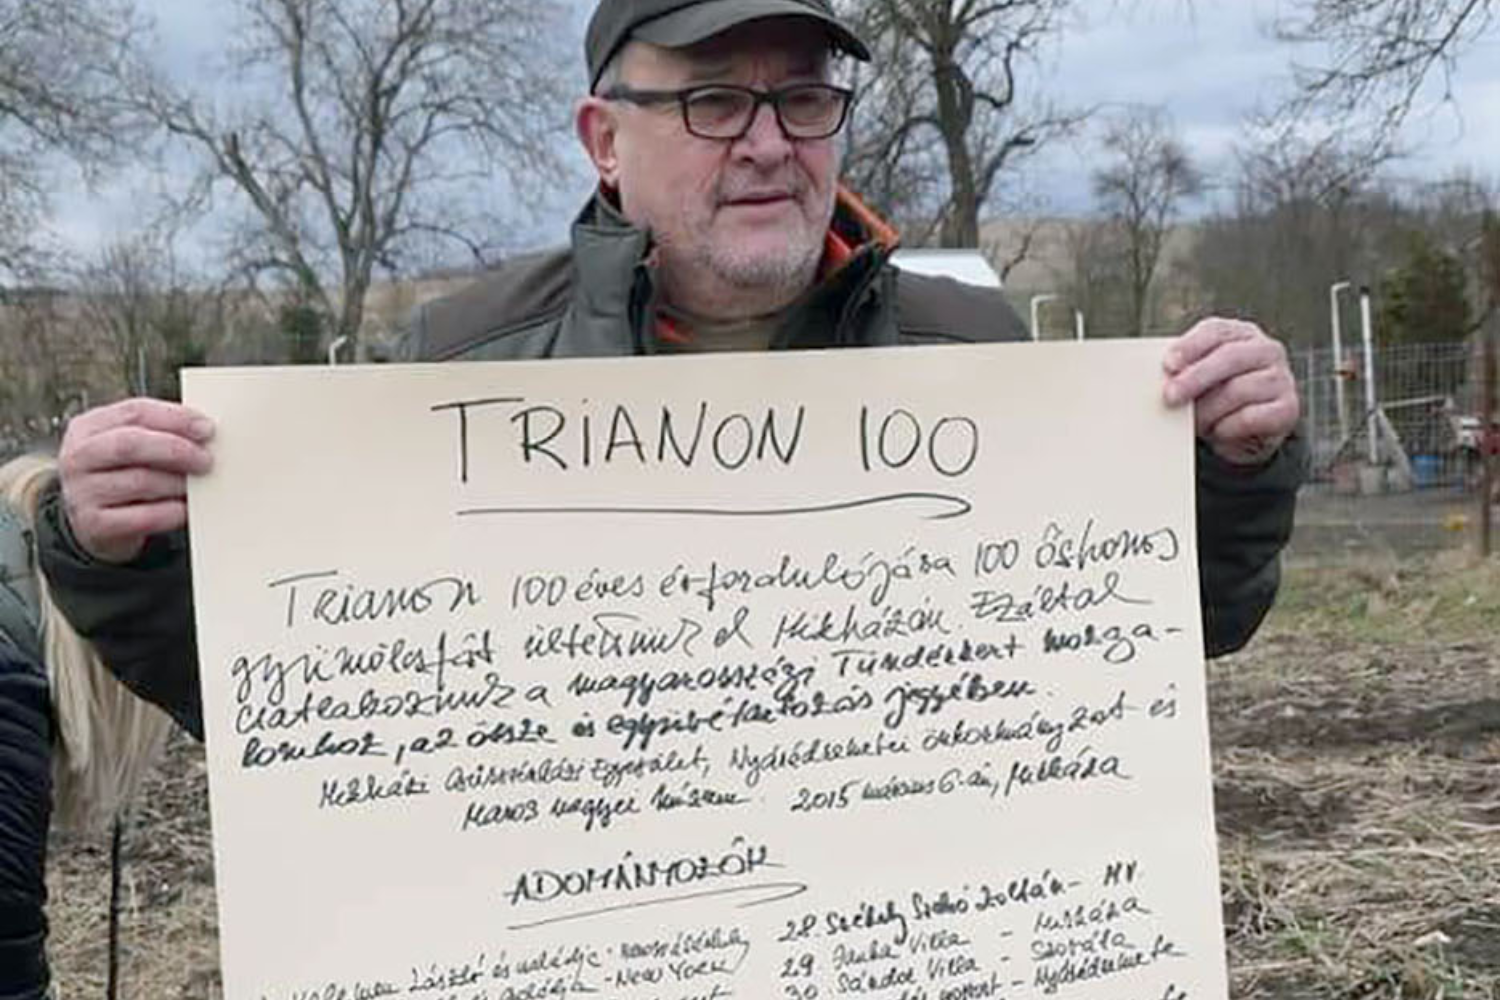 TRIANON 100
Trianon 100 éves évfordulójára 100 őshonos
gyümölcsfát ültettünk el Mikházán. Ezáltal
csatlakozunk a magyarországi Tündérkert mozga-
lomhoz, az össze és együvétartozás jegyében.
Mikházi Csűrszínházi Egyesület, Nyárádremetei önkormányzat és
Maros megyei Múzeum. 2015 március 6-án, Mikháza
ADOMÁNYOZÓK
László és családja - Marosvásárhely
- New York
28. Székely Szabó Zoltán - MV
29. Janka Villa - Mikháza
30. Sándor Villa - Szováta
- Nyárádremete